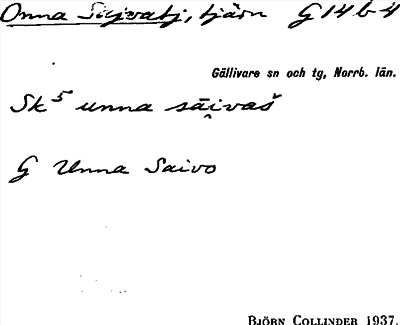 Onna Sujvatj, tjärn G 14 b 4
Gällivare sn och tg, Norrb. län.
Sk⁵ unna sāi̯vaš
G Unna Saivo
BJÖRN COLLINDER 1937.